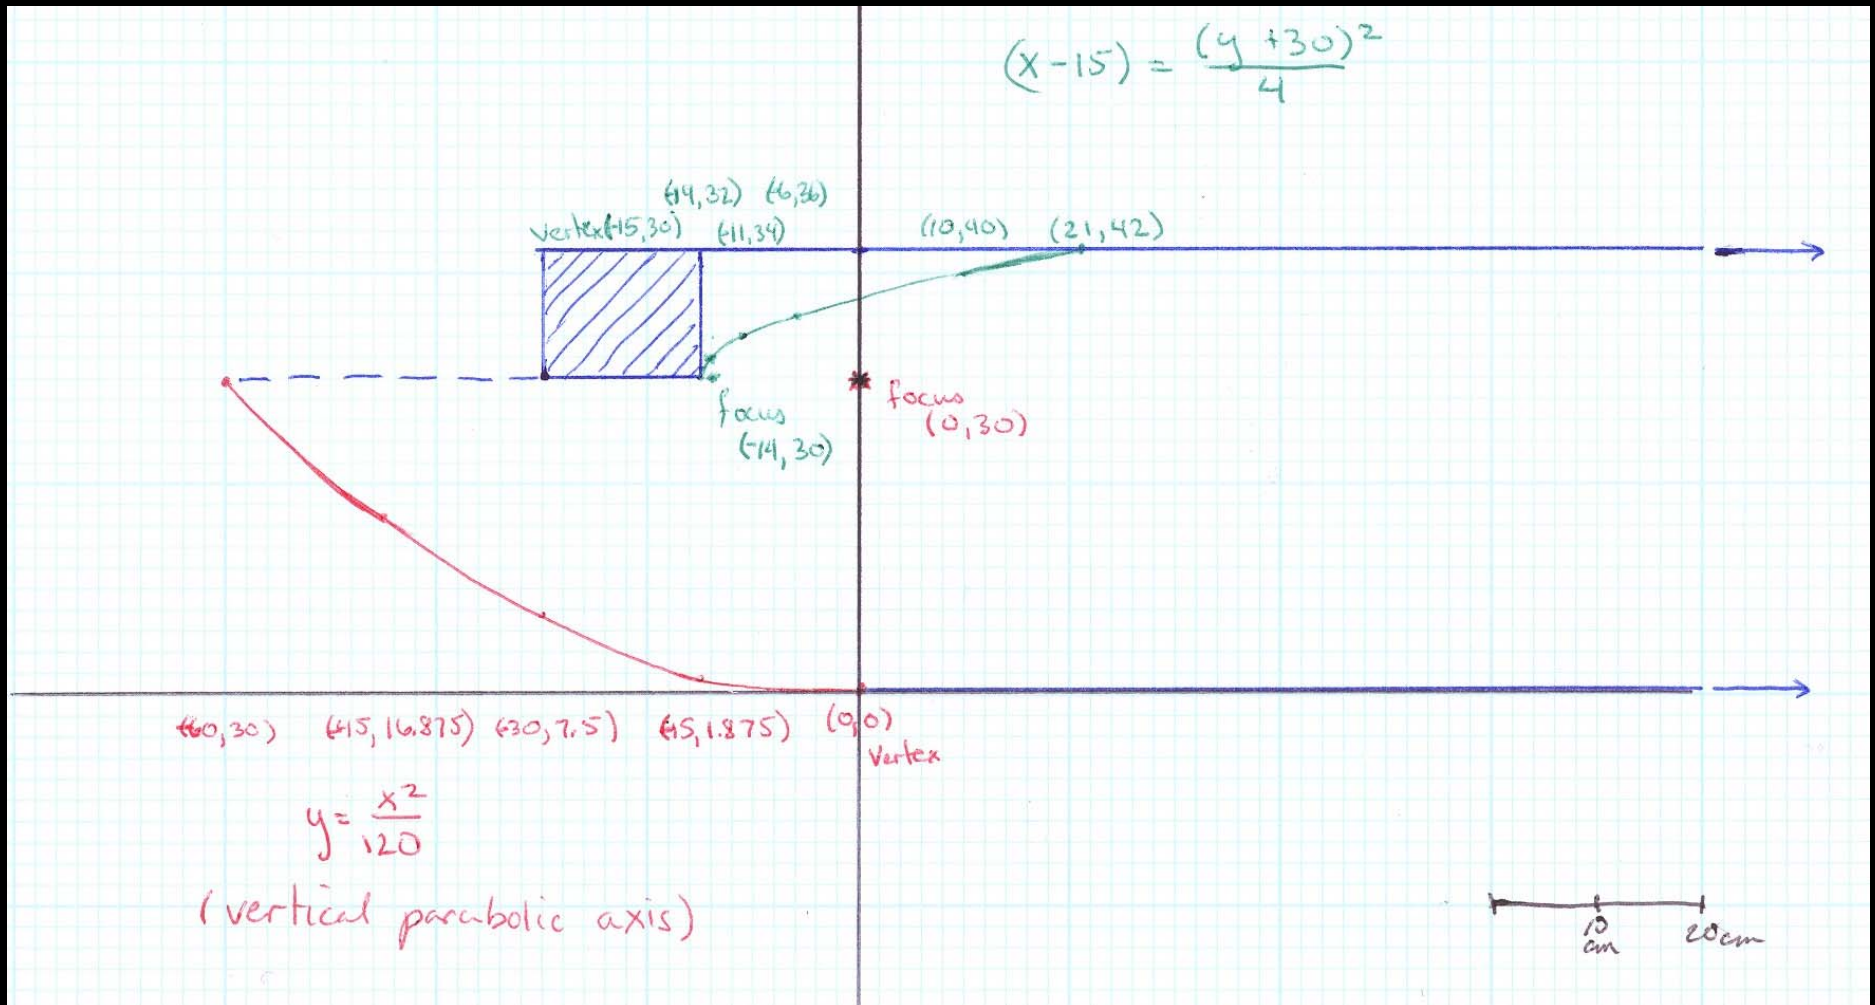 (x-15) = (y+30)²
4
(-14,32) (-6,36)
vertex(-15,30) (-11,34) (10,40) (21,42)
focus
(-14,30)
focus
(0,30)
(-60,30) (-45,16.875) (-30,7.5) (-15,1.875) (0,0)
Vertex
y= x²
120
(vertical parabolic axis)
10 cm
20cm